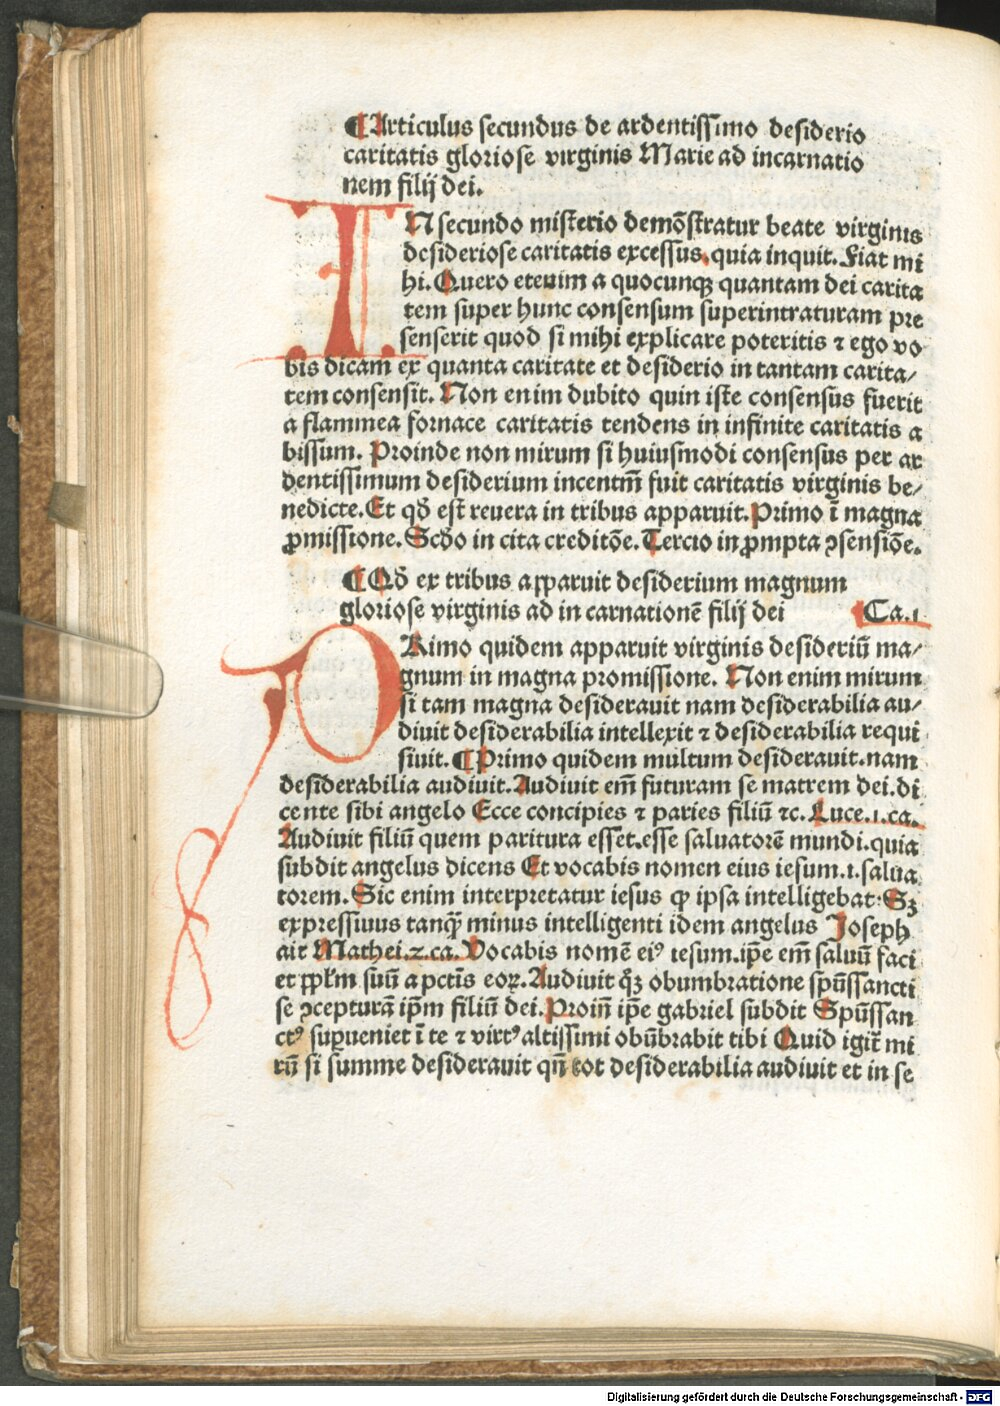 ¶Articulus secundus de ardentissimo desiderio
caritatis gloriose virginis Marie ad incarnatio
nem filij dei.
IN secundo misterio demōstratur beate virginis
desideriose caritatis excessus. quia inquit. Fiat mi
hi. Quero etenim a quocunqꝫ quantam dei carita
tem super hunc consensum superintraturam pre
senserit quod si mihi explicare poteritis ⁊ ego vo
bis dicam ex quanta caritate et desiderio in tantam carita/
tem consensit. Non enim dubito quin iste consensus fuerit
a flammea fornace caritatis tendens in infinite caritatis a
bissum. Proinde non mirum si huiusmodi consensus per ar
dentissimum desiderium incentm̄ fuit caritatis virginis be/
nedicte. Et qđ est reuera in tribus apparuit. Primo ī magna
ꝓmissione. Scđo in cita creditōe. Tercio in ꝓmpta ↄsensiōe.
¶Qđ ex tribus apparuit desiderium magnum
gloriose virginis ad in carnationē filij dei Ca.1
PRimo quidem apparuit virginis desideriū ma/
gnum in magna promissione. Non enim mirum
si tam magna desiderauit nam desiderabilia au/
diuit desiderabilia intellexit ⁊ desiderabilia requi
siuit. ¶Primo quidem multum desiderauit. nam
desiderabilia audiuit. Audiuit em̄ futuram se matrem dei. di
cente sibi angelo Ecce concipies ⁊ paries filiū ⁊c. Luce.1.ca.
Audiuit filiū quem paritura esset. esse saluatorē mundi. quia
subdit angelus dicens Et vocabis nomen eius iesum. ı. salua
torem. Sic enim interpretatur iesus ꝙ ipsa intelligebat: Sꝫ
expressiuus tanqꝫ̄ minus intelligenti idem angelus Joseph
ait Mathei.2.ca. Vocabis nomē eiꝰ iesum. ip̄e em̄ saluū faci
et pp̄lm suū a pctīs eoꝝ. Audiuit qꝫ̄ obumbratione spūssancti
se ↄcepturā ip̄m filiū dei. Proin̄ ip̄e gabriel subdit Spūssan
ctꝰ suꝑueniet ī te ⁊ virtꝰ altissimi obūbrabit tibi Quid igit̄ mi
rū si summe desiderauit qn̄ tot desiderabilia audiuit et in se
Digitalisierung gefördert durch die Deutsche Forschungsgemeinschaft - DFG